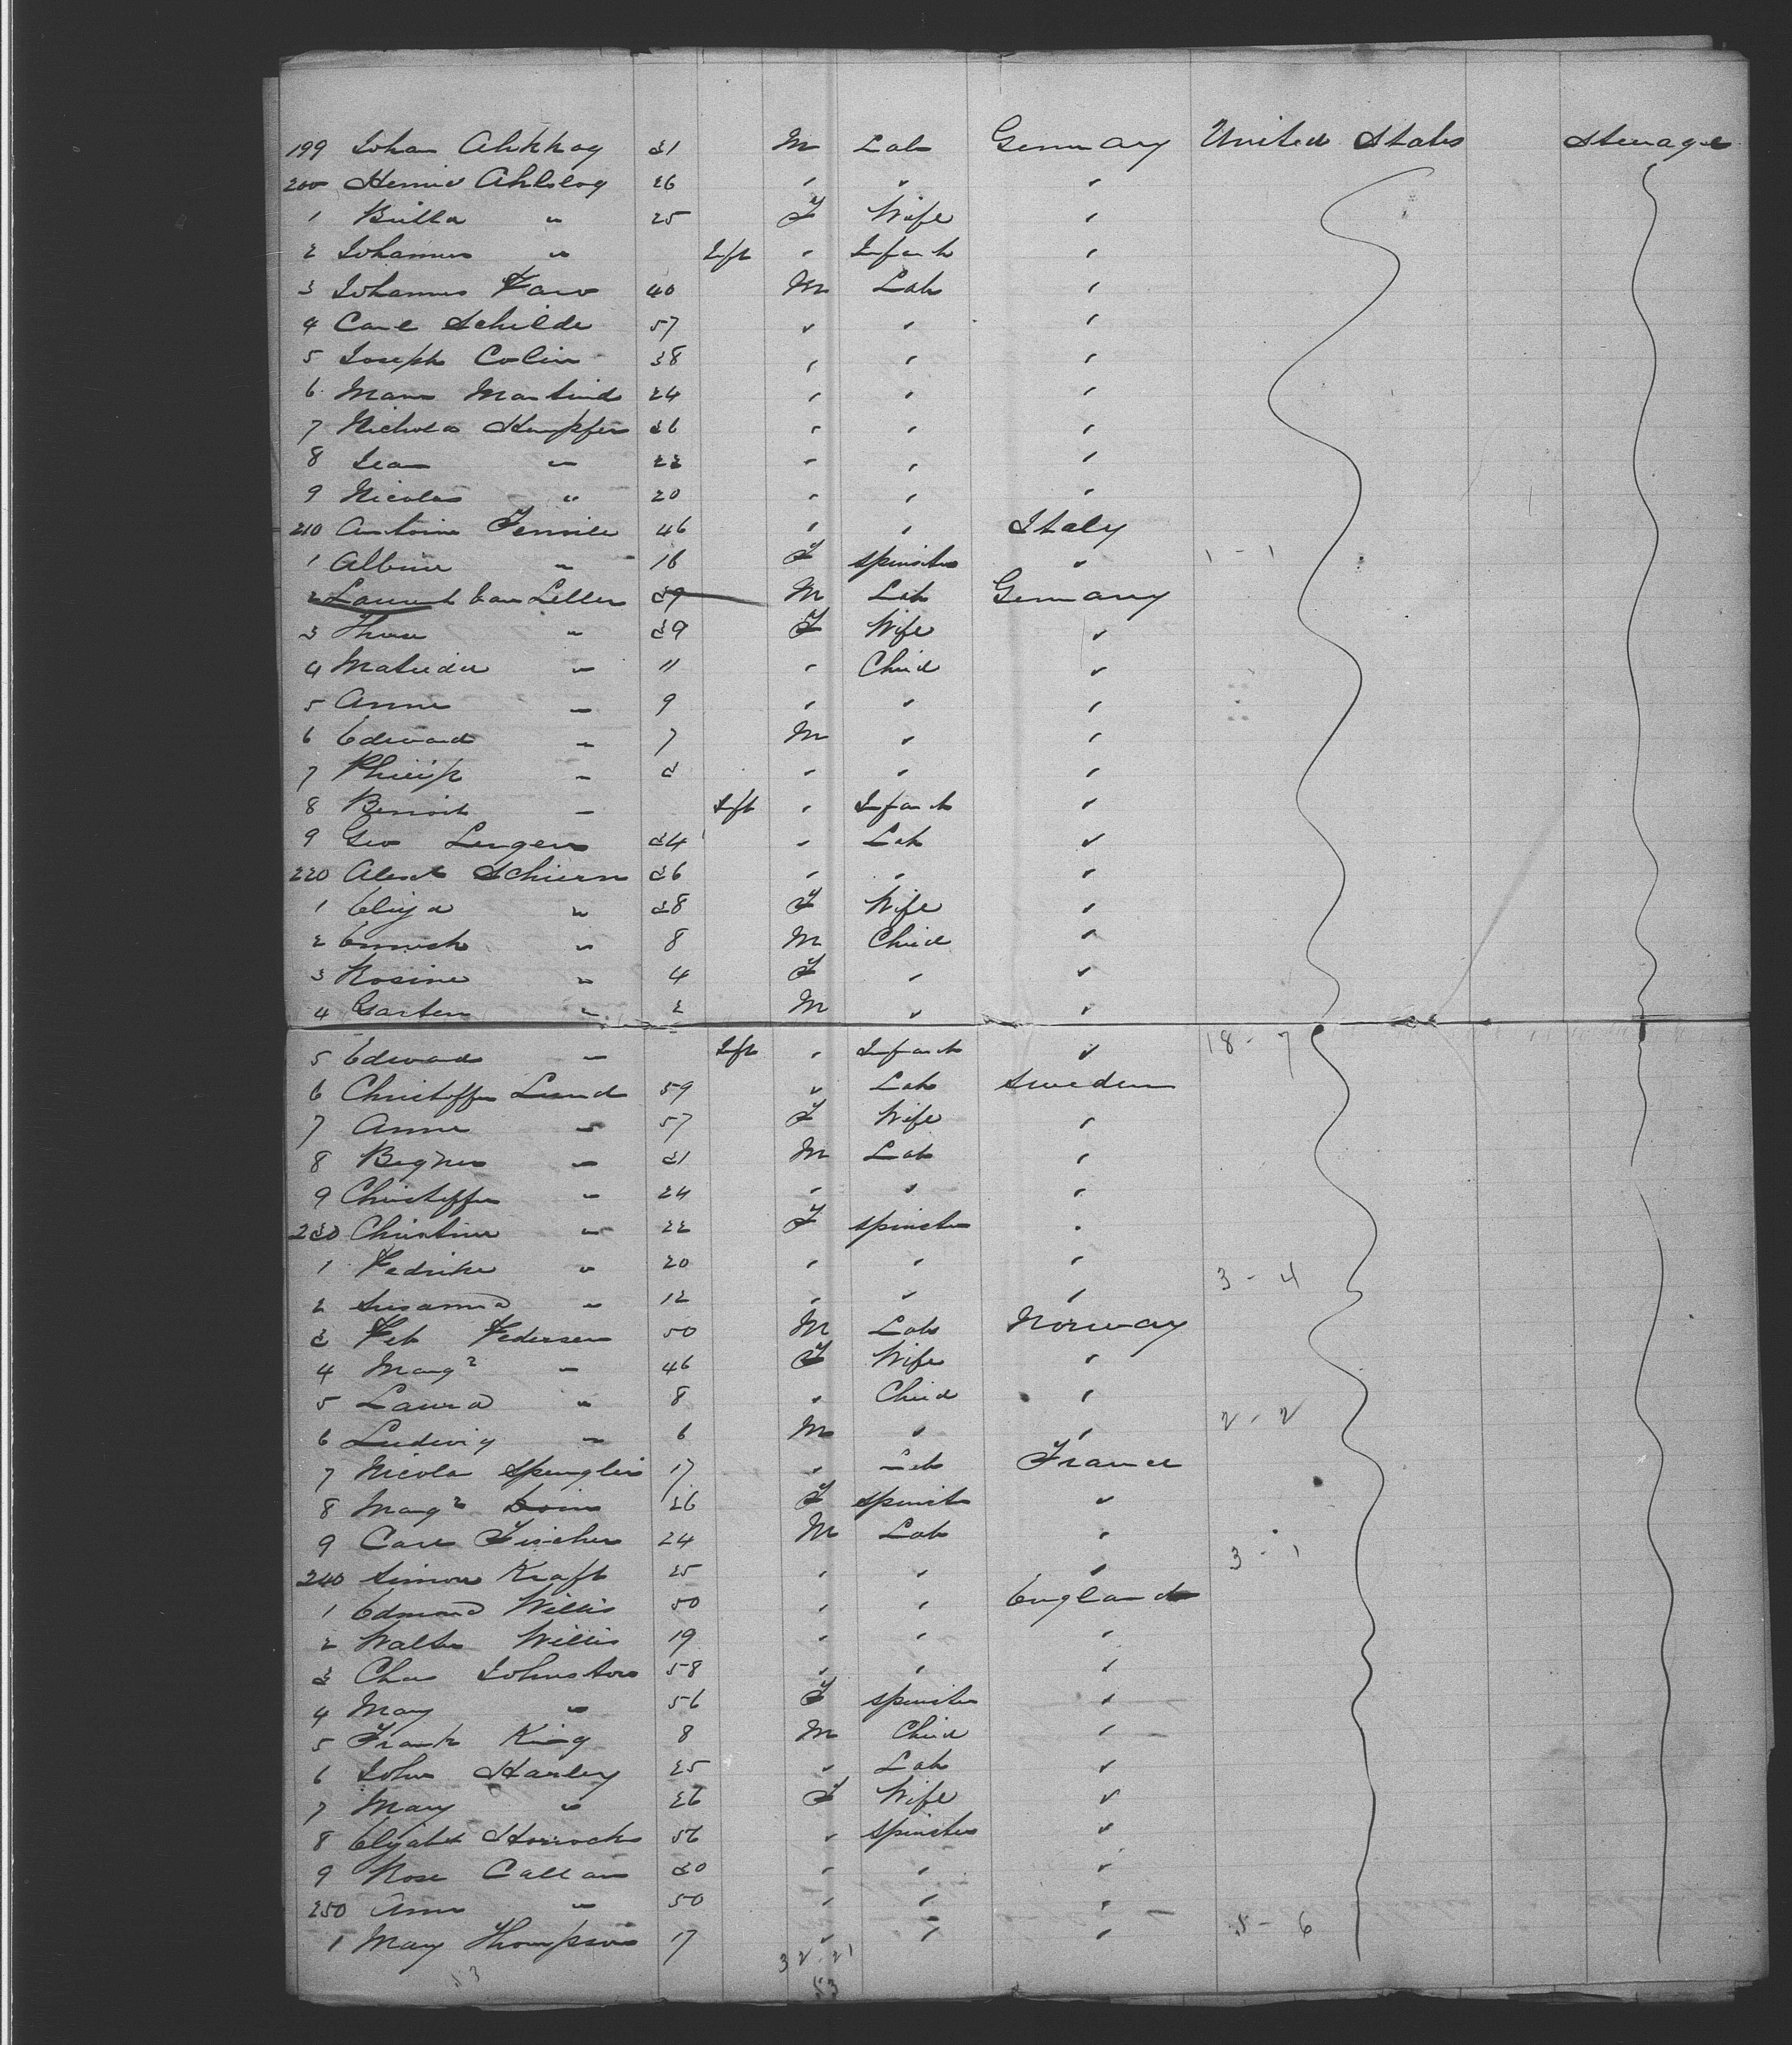 199 Johan Ahkkog 31 M Lab Germany United States Steerage
200 Henric Ahlskog 26 " " "
1 Britta " 25 F Wife "
2 Johannes " Inft " Infant "
3 Johannes 40 M Lab "
4 Carl Schilde 57 " " "
5 Joseph Colin 38 " " "
6 Mans 24 " " "
7 Nicholas Kempfer 36 " " "
8 Jean " 22 " " "
9 Nicolas " 20 " " "
210 Antoine 46 " " Italy
1 Albine " 16 F spinster " 1 - 1
2 Laurent Van Leller 39 M Lab Germany
3 " 39 F Wife "
4 Matilda " 11 " Child "
5 Anne " 9 " " "
6 Edward " 7 M " "
7 Philip " 3 " " "
8 Benoit " Inft " Infant "
9 Geo Lengers 34 " Lab "
220 Alexd Schiern 36 " " "
1 Eliza " 38 F Wife "
2 " 8 M Child "
3 Rosine " 4 F " "
4 Garten " 2 M " "
5 Edward " Inft " Infant " 18 - 7
6 Christoffer Lund 59 " Lab Sweden
7 Anne " 57 F Wife "
8 " 31 M Lab "
9 Christoffer " 24 " " "
230 Christine " 22 F spinster "
1 Fedrike " 20 " " " 3 - 4
2 Susanna " 12 " " "
3 Pet Pedersen 50 M Lab Norway
4 Margt " 46 F Wife "
5 Laura " 8 " Child "
6 Ludwig " 6 M " " 2 - 2
7 Nicola Spenglers 17 " Lab France
8 Margt 26 F spinst "
9 Carl Fischer 24 M Lab "
240 Simon Kraft 25 " " " 3 - 1
1 Edmond Willis 50 " " England
2 Walter Willis 19 " " "
3 Chas Johnston 58 " " "
4 Mary " 56 F spinster "
5 Frank King 8 M Child "
6 John Harley 25 " Lab "
7 Mary " 26 F Wife "
8 Elizabt Horrocks 56 " spinster "
9 Rose Callan 30 " " "
250 Ann " 50 " " "
1 Mary Thompson 17 " " " 5 - 6
53 32 - 21
53